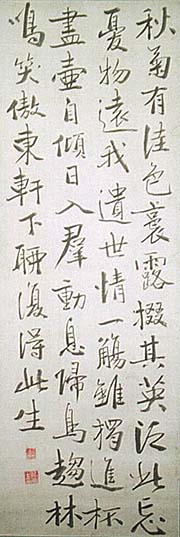 秋菊有佳色裛露掇其英泛此忘
憂物遠我遺世情一觴雖獨進杯
盡壺自傾日入羣動息歸鳥趨林
鳴笑傲東軒下聊復得此生